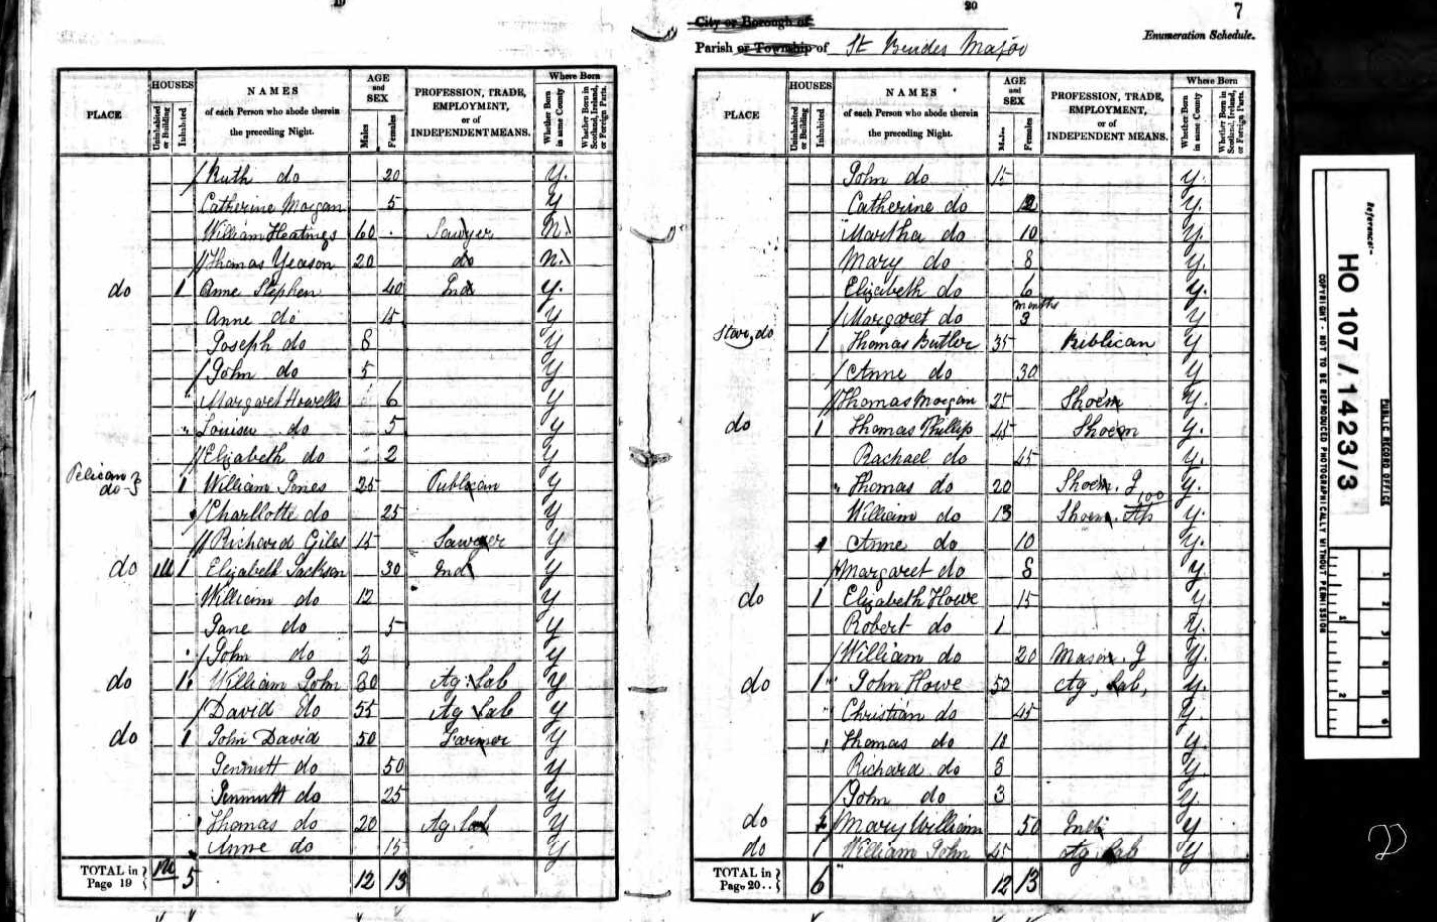 19
PLACE HOUSES Uninhabited or Building Inhabited NAMES of each Person who abode therein the preceding Night. AGE and SEX Males Females PROFESSION, TRADE, EMPLOYMENT, or of INDEPENDENT MEANS. Where Born Whether Born in same County Whether Born in Scotland, Ireland, or Foreign Parts.
Ruth do 20 y.
Catherine Morgan 5 y
William Heatings 60 Sawyer N
Thomas Yeason 20 do N.
do 1 Anne Stephen 40 Ind y.
Anne do 15 y
Joseph do 8 y
John do 5 y
Margaret Howells 6 y
Louisa do 5 y
Elizabeth do 2 y
Pelican do 1 William Jones 25 Publican y
Charllotte do 25 y
Richard Giles 15 Sawyer y
do 1 Elizabeth Jackson 30 Ind y
William do 12 y
Jane do 5 y
John do 2 y
do 1 William John 80 Ag. Lab y
David do 55 Ag Lab y
do 1 John David 50 Farmer y
Jennett do 50 y
Jennett do 25 y
Thomas do 20 Ag. Lab y
Anne do 15 y
TOTAL in Page 19 5 12 13
20
7
City or Borough of
Enumeration Schedule.
Parish or Township of St Brides Major
PLACE HOUSES Uninhabited or Building Inhabited NAMES of each Person who abode therein the preceding Night. AGE and SEX Males Females PROFESSION, TRADE, EMPLOYMENT, or of INDEPENDENT MEANS. Where Born Whether Born in same County Whether Born in Scotland, Ireland, or Foreign Parts.
John do 15 y.
Catherine do 12 y.
Martha do 10 y.
Mary do 8 y.
Elizabeth do 6 y.
Margaret do months 3 y
Star, do 1 Thomas Butler 35 Publican y
Anne do 30 y
Thomas Morgan 25 Shoem y.
do 1 Thomas Phillip 45 Shoem y.
Rachael do 45 y.
Thomas do 20 Shoem. J y.
William do 13 Shoem. Ap y.
Anne do 10 y.
Margaret do 8 y.
do 1 Elizabeth Howe 15 y.
Robert do 1 y.
William do 20 Mason. J y.
do 1 John Howe 50 Ag. Lab, y.
Christian do 45 y.
Thomas do 18 y.
Richard do 8 y.
John do 3 y.
do 1 Mary William 50 Ind y
do 1 William John 45 Ag Lab y
TOTAL in Page 20 6 12 13
Reference:-
HO 107/1423/3
PUBLIC RECORD OFFICE
COPYRIGHT - NOT TO BE REPRODUCED PHOTOGRAPHICALLY WITHOUT PERMISSION